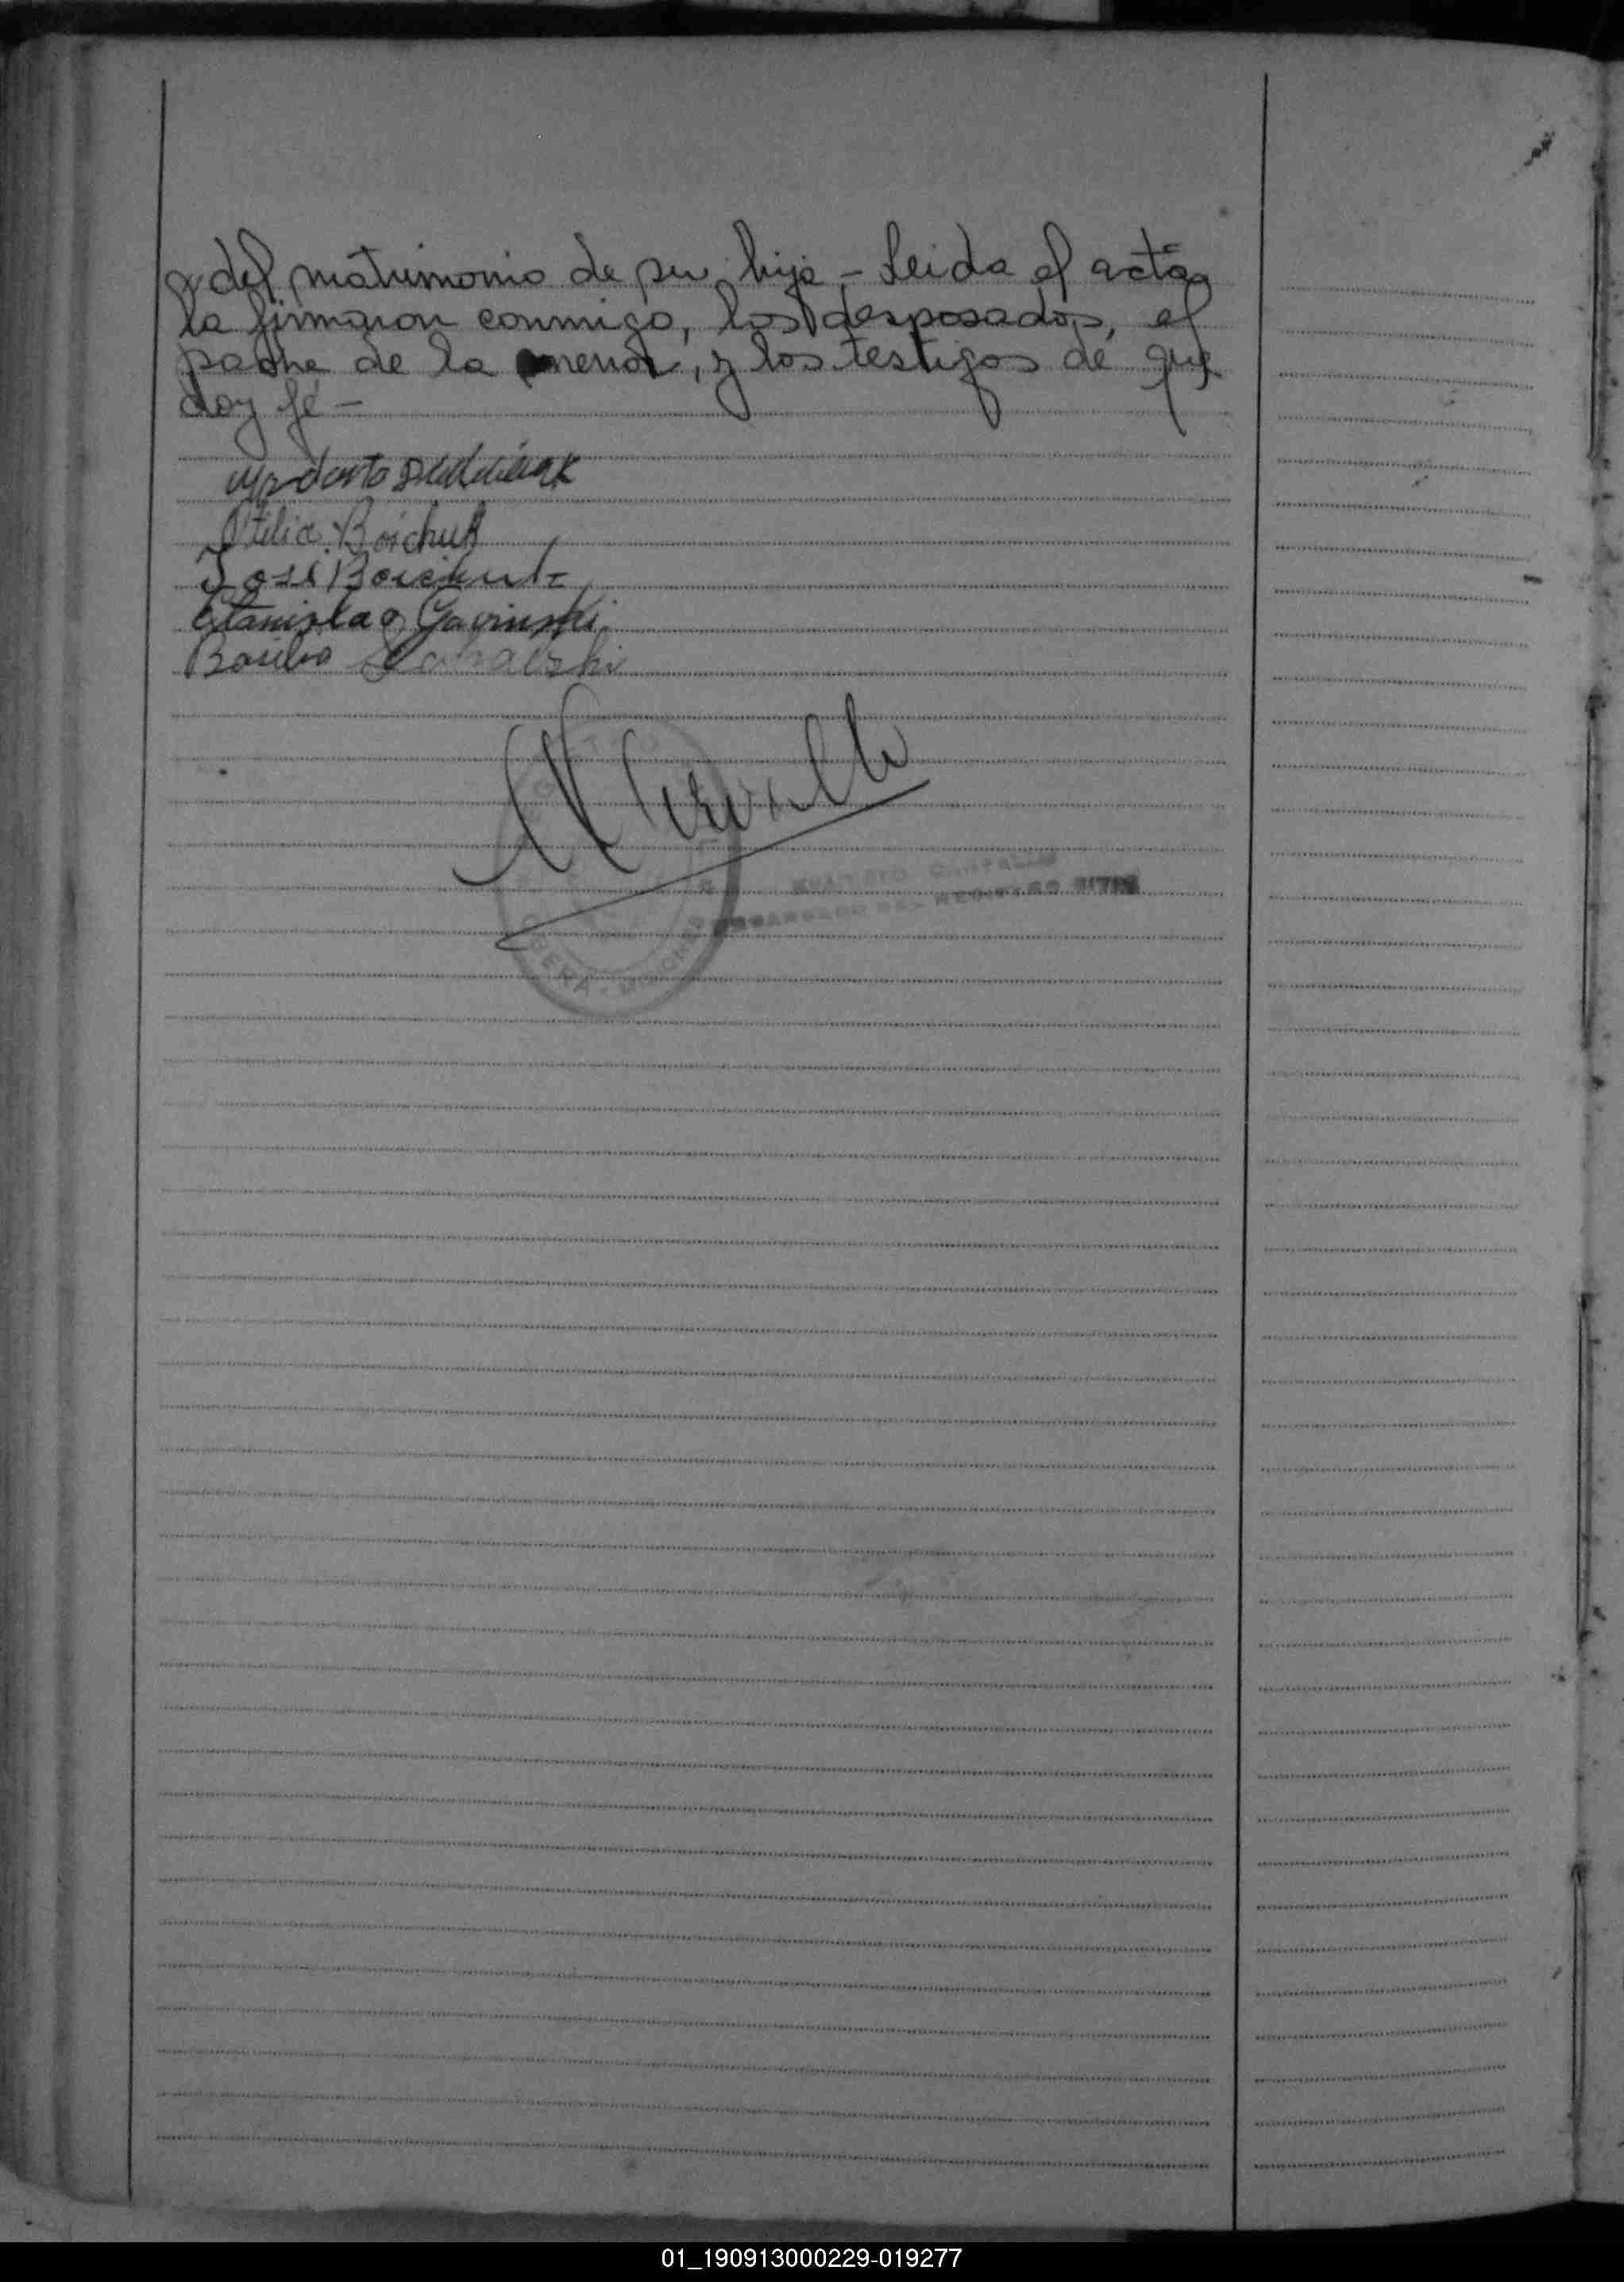 y del matrimonio de su hija - Leida el acta
la firmaron conmigo, los desposados, el
padre de la menor, y los testigos de que
doy fé -
Modesto
Otilia Boichuk
José Boichuk
Estanislao Gavinski
Basilio
REGISTRO
OBERÁ - MISIONES
ENCARGADO DEL REGISTRO CIVIL
01_190913000229-019277